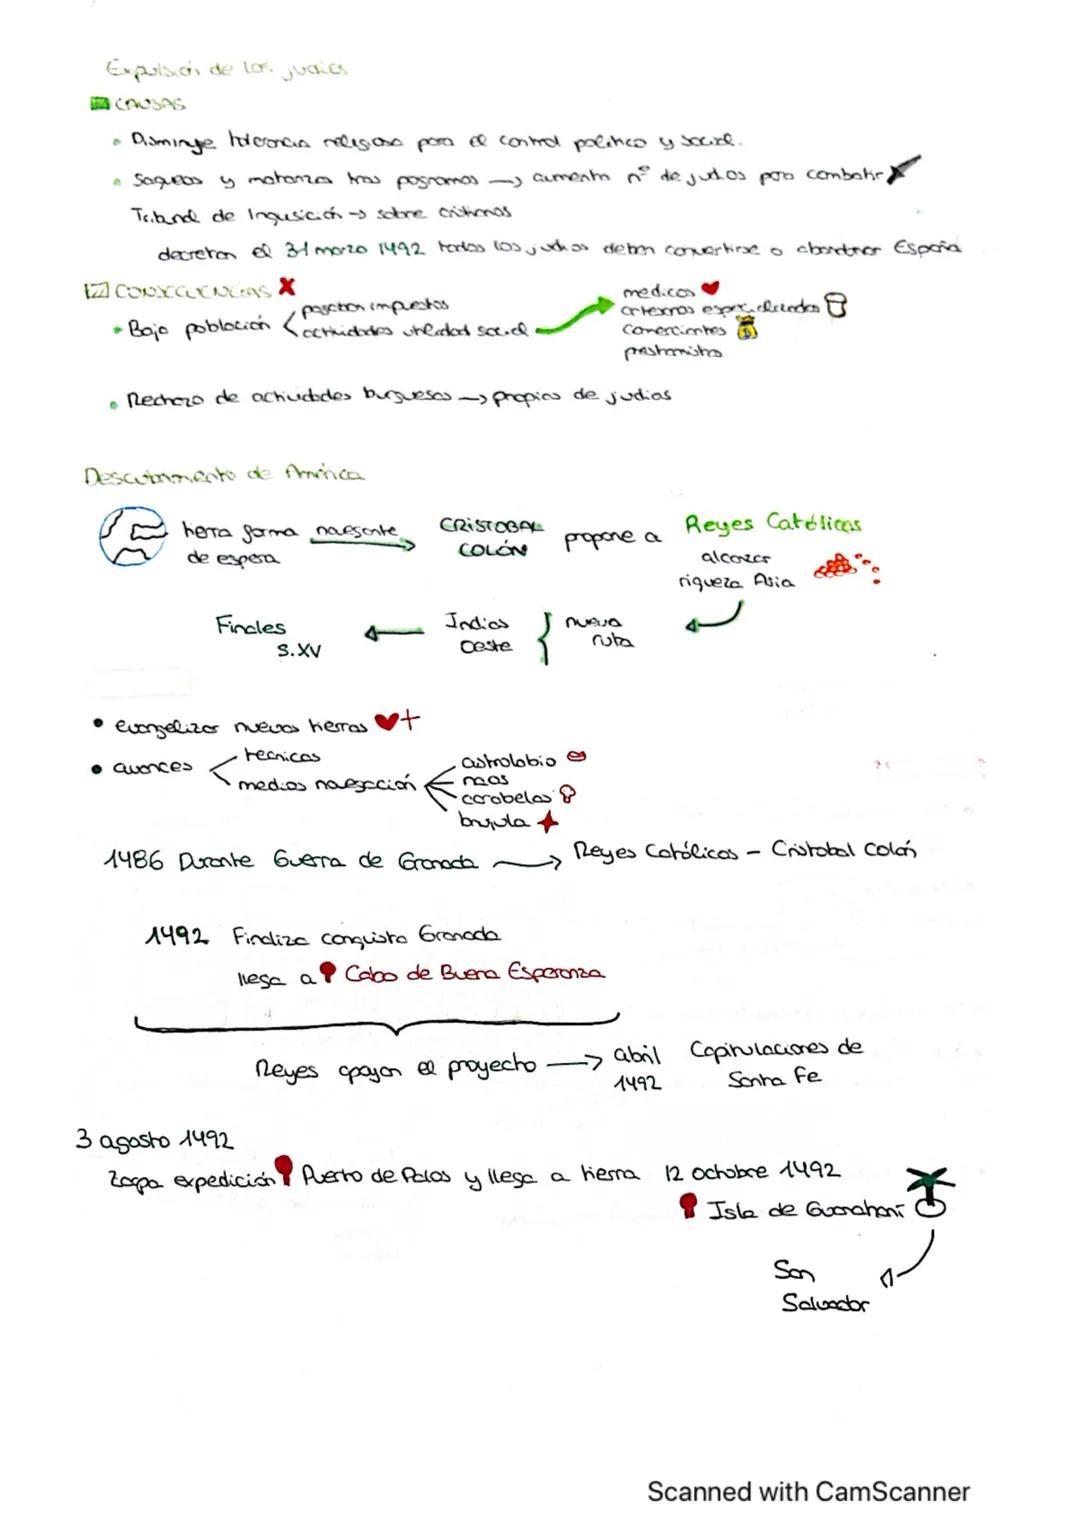 Expulsión de los judíos
CAUSAS
• Disminuye tolerancia religiosa para el control político y social.
• Saqueos y matanzas tras pogromos → aumenta nº de judíos para combatir
Tribunal de Inquisición → sobre cristianos
decretan el 31 marzo 1492 todos los judíos deben convertirse o abandonar España
CONSECUENCIAS X
• Baja población
pagaban impuestos
actividades utilidad social
medicos
artesanos especializados
comerciantes
prestamistas
• Rechazo de actividades burguesas → propias de judias
Descubrimiento de América
tierra forma de espera
navegante
CRISTOBAL COLÓN
propone a
Reyes Católicos
alcanzar riqueza Asia
nueva ruta
Indias Oeste
Finales S.XV
• evangelizar nuevas tierras
• avances
tecnicas
medios navegación
astrolabio
naos
carabelas
brujula
1486 Durante Guerra de Granada → Reyes Católicos - Cristobal Colón
1492 Finaliza conquista Granada
llega a Cabo de Buena Esperanza
Reyes apoyan el proyecto → abril 1492 Capitulaciones de Santa Fe
3 agosto 1492
Zarpa expedición Puerto de Palos y llega a tierra 12 octubre 1492
Isla de Guanahaní
San Salvador
Scanned with CamScanner